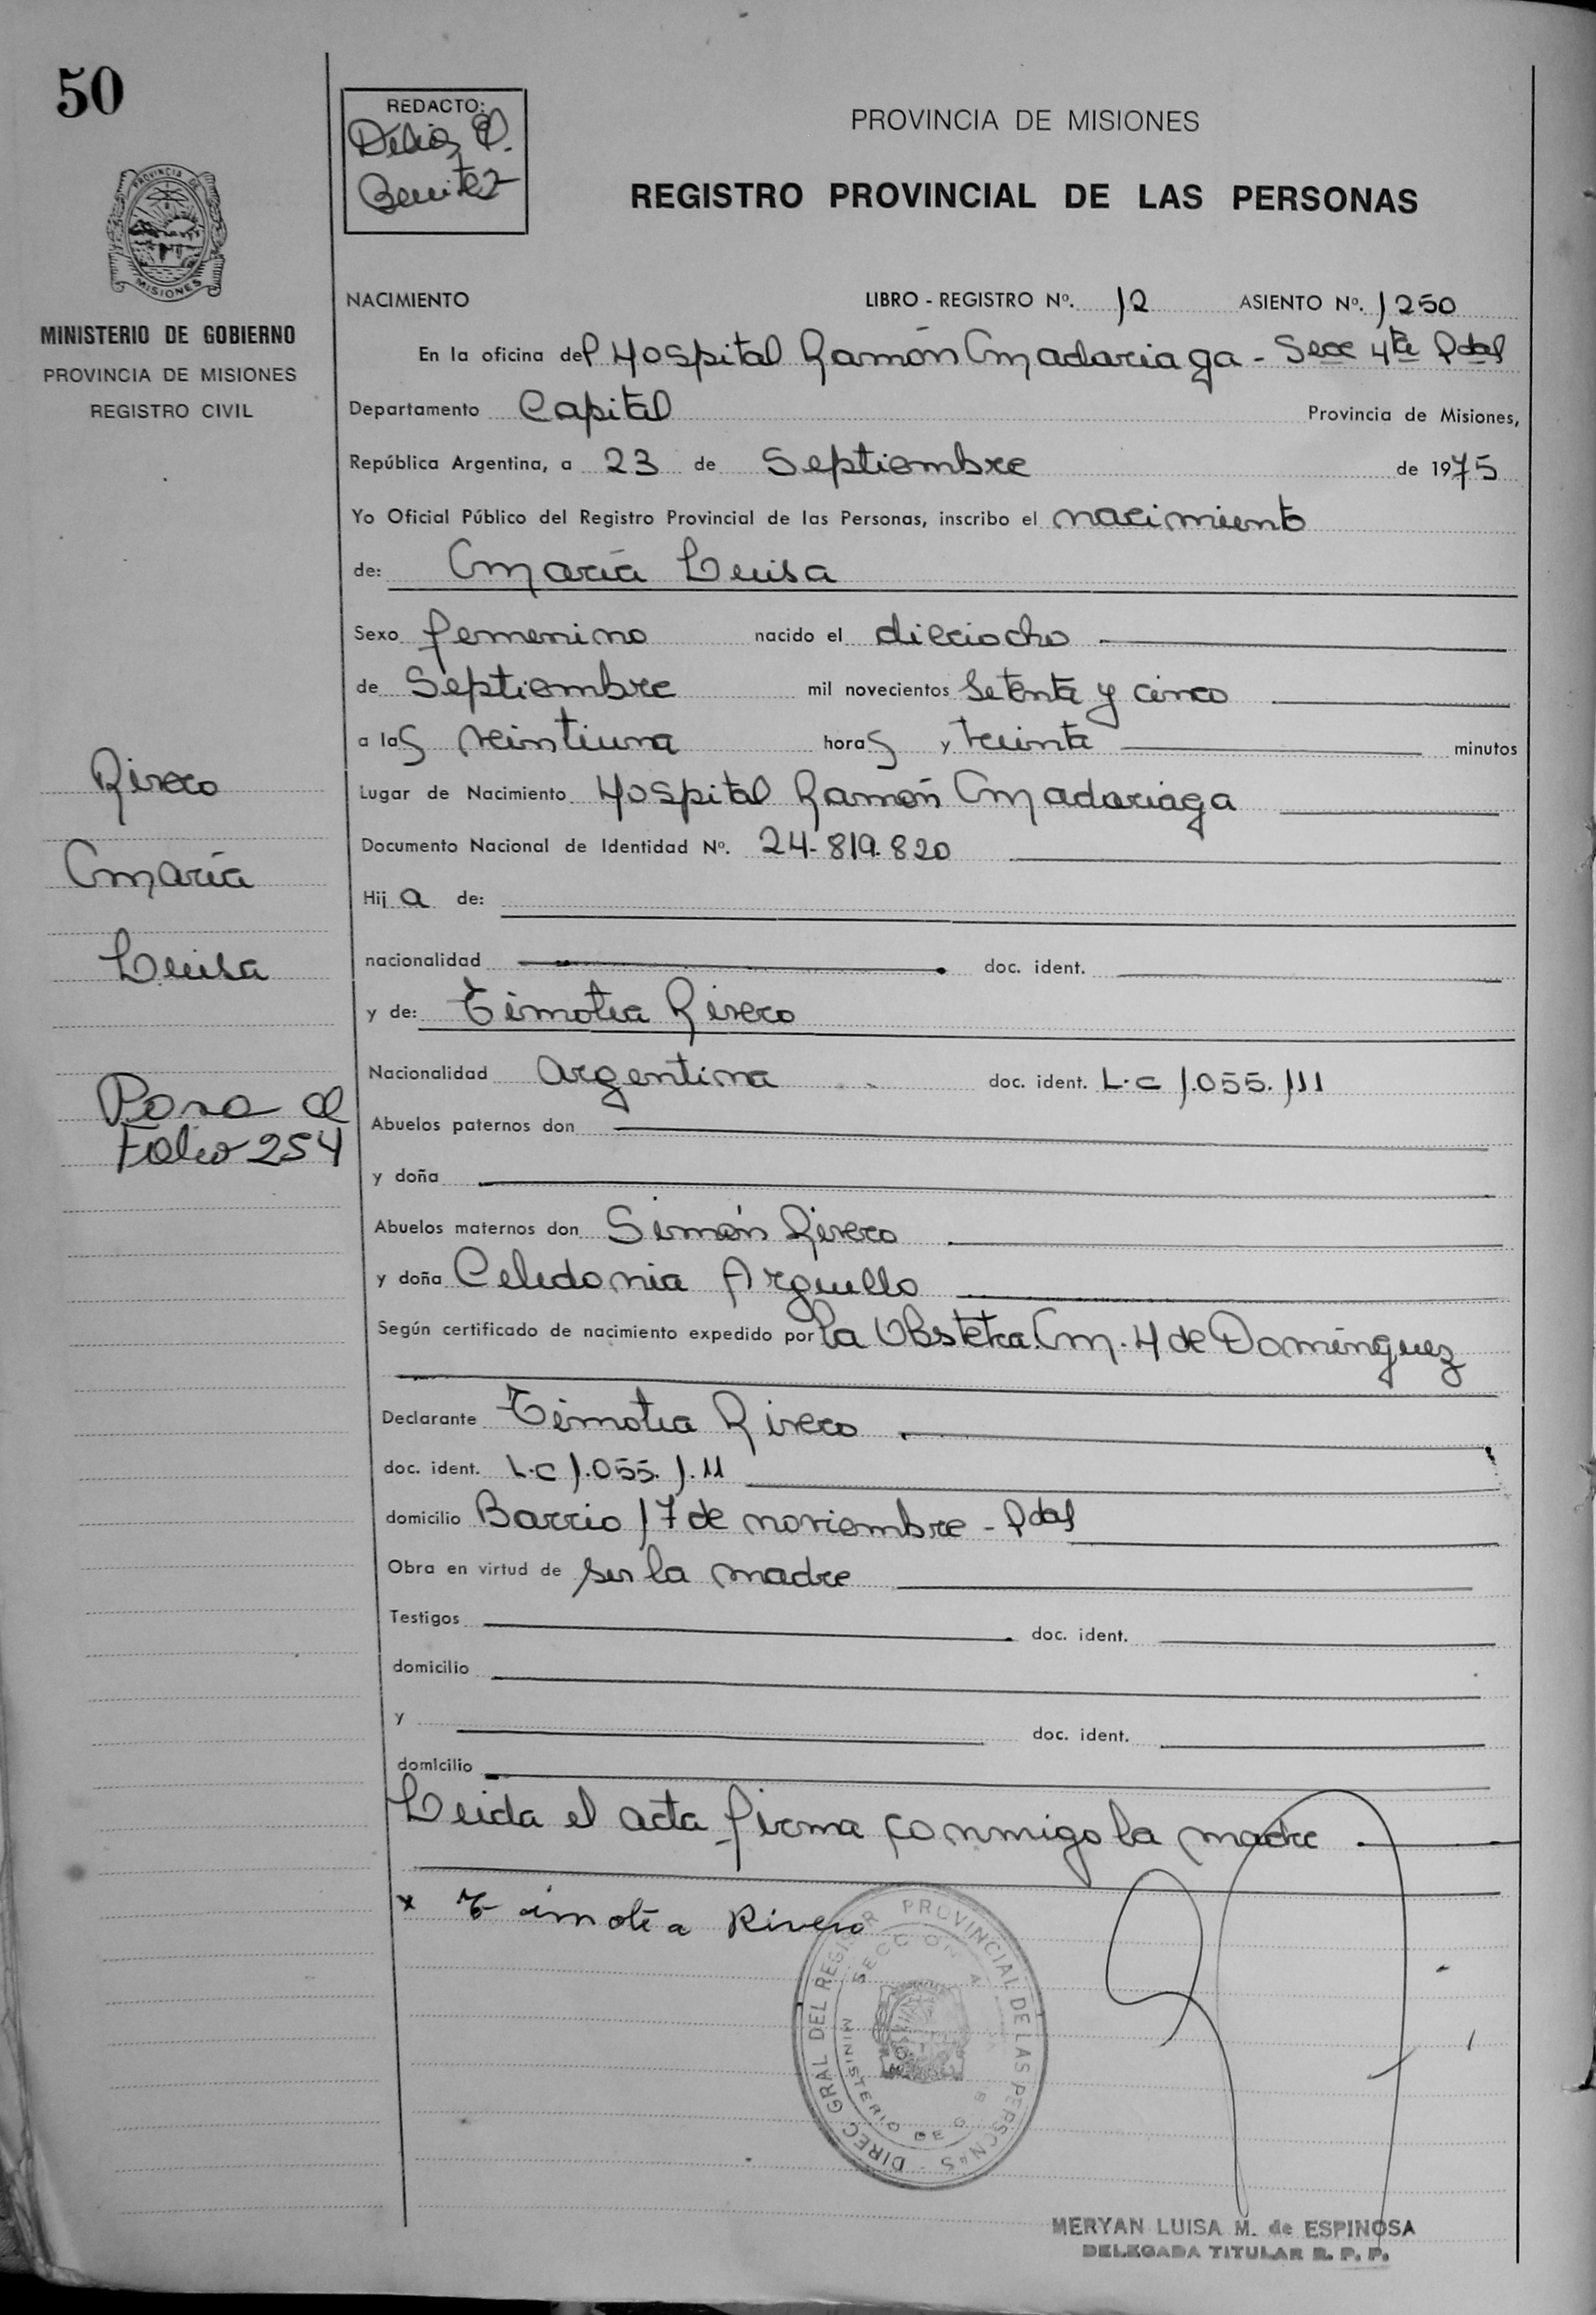 50
REDACTO:
Delia
Benitez
PROVINCIA DE MISIONES
REGISTRO PROVINCIAL DE LAS PERSONAS
PROVINCIA DE
MISIONES
MINISTERIO DE GOBIERNO
PROVINCIA DE MISIONES
REGISTRO CIVIL
NACIMIENTO LIBRO - REGISTRO Nº. 12 ASIENTO Nº. 1250
En la oficina del Hospital Ramón Madariaga - Secc 4ta Pdas
Departamento Capital Provincia de Misiones,
República Argentina, a 23 de Septiembre de 1975
Yo Oficial Público del Registro Provincial de las Personas, inscribo el nacimiento
de: María Luisa
Sexo femenino nacido el dieciocho
de Septiembre mil novecientos setenta y cinco
a las veintiuna horas y treinta minutos
Lugar de Nacimiento Hospital Ramón Madariaga
Documento Nacional de Identidad Nº. 24.819.820
Hija de:
nacionalidad doc. ident.
y de: Timotea Rivero
Nacionalidad Argentina doc. ident. L.C 1.055.111
Abuelos paternos don
y doña
Abuelos maternos don Simón Rivero
y doña Celedonia Arguello
Según certificado de nacimiento expedido por la Obstetra. M. H de Domínguez
Declarante Timotea Rivero
doc. ident. L.C 1.055.1.11
domicilio Barrio 17 de noviembre - Pdas
Obra en virtud de ser la madre
Testigos doc. ident.
domicilio
y doc. ident.
domicilio
Leida el acta firma conmigo la madre
x Timotea Rivero
Rivero
María
Luisa
Pasa al
Folio 254
DIREC GRAL DEL REGISTR PROVINCIAL DE LAS PERSONAS
MINISTERIO DE G
MERYAN LUISA M. de ESPINOSA
DELEGADA TITULAR R. P. P.